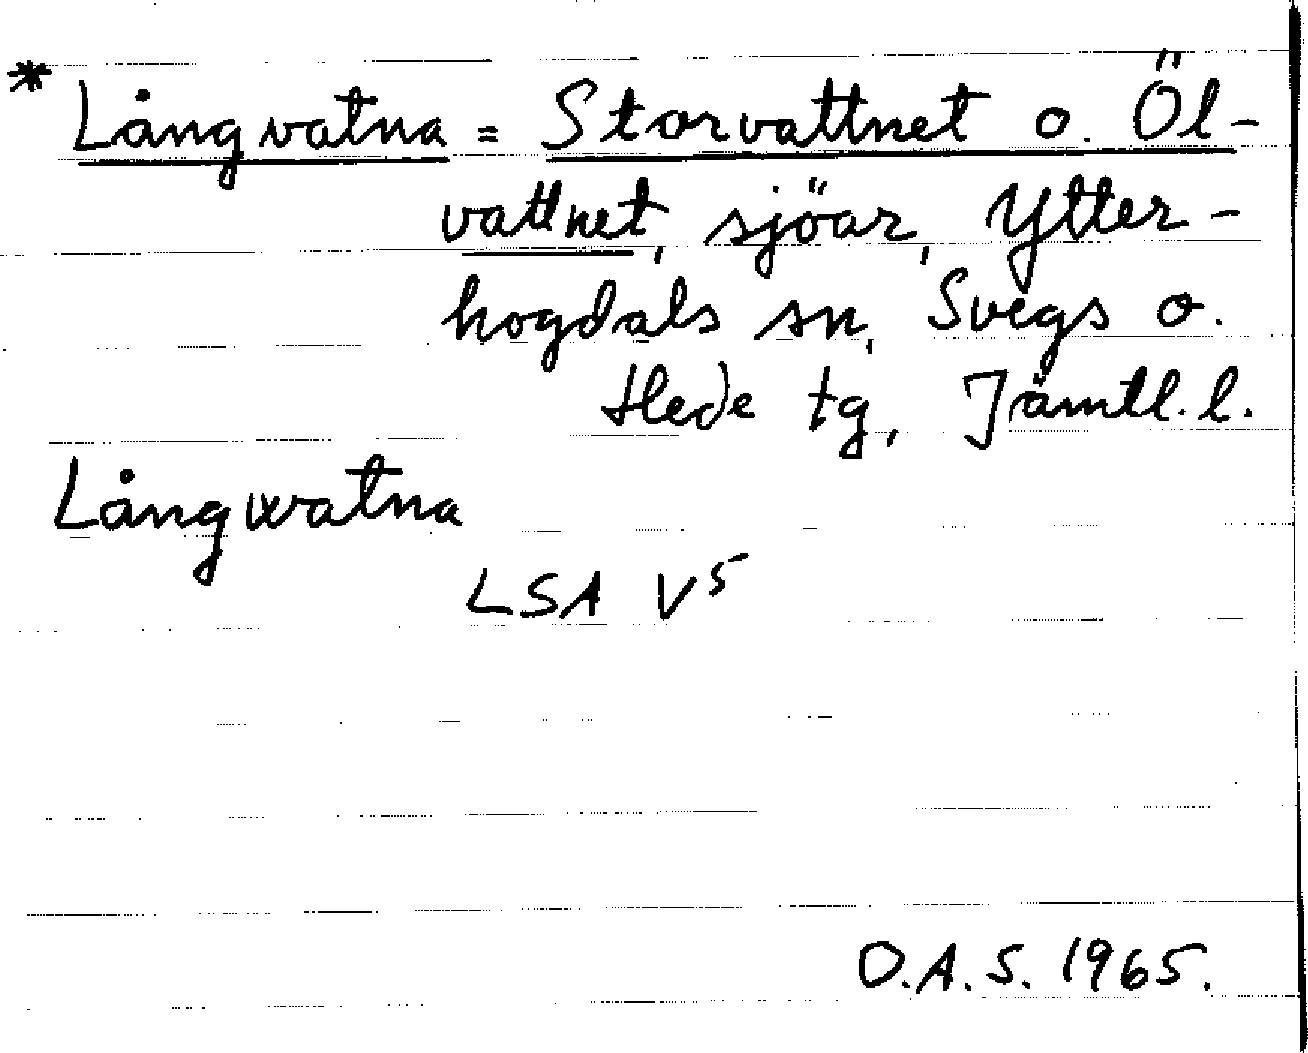 * Långvatna = Storvattnet o. Öl-
vattnet, sjöar, Ytter-
hogdals sn, Svegs o.
Hede tg, Jämtl. l.
Långwatna
LSA V⁵
O.A.S. 1965.